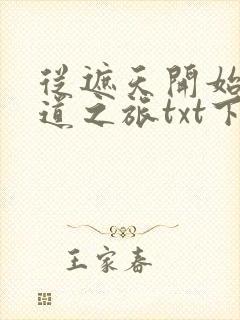 從遮天開始
道之旅txt下
王家春